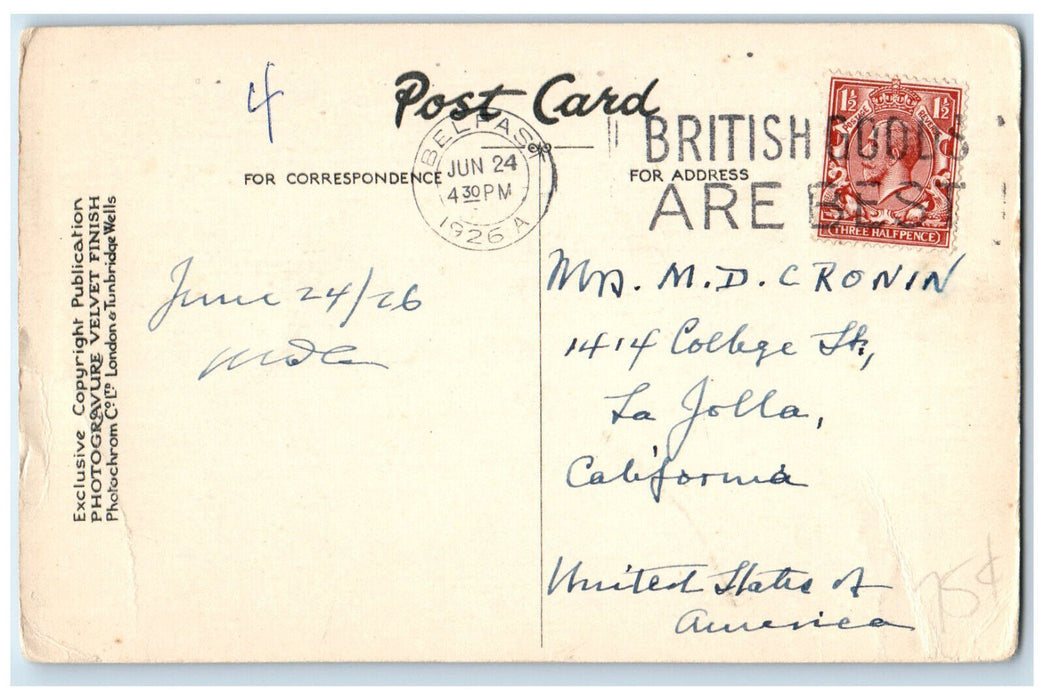 4
Post Card
BELFAST
JUN 24
4 30 PM
1926 A
BRITISH GOODS
ARE BEST
1½ 1½
POSTAGE REVENUE
THREE HALFPENCE
FOR CORRESPONDENCE
FOR ADDRESS
Exclusive Copyright Publication
PHOTOGRAVURE VELVET FINISH
Photochrom Co. Ltd. London & Tunbridge Wells
June 24/26
Mrs. M. D. CRONIN
1414 College St.,
La Jolla,
California
United States of
America
75¢